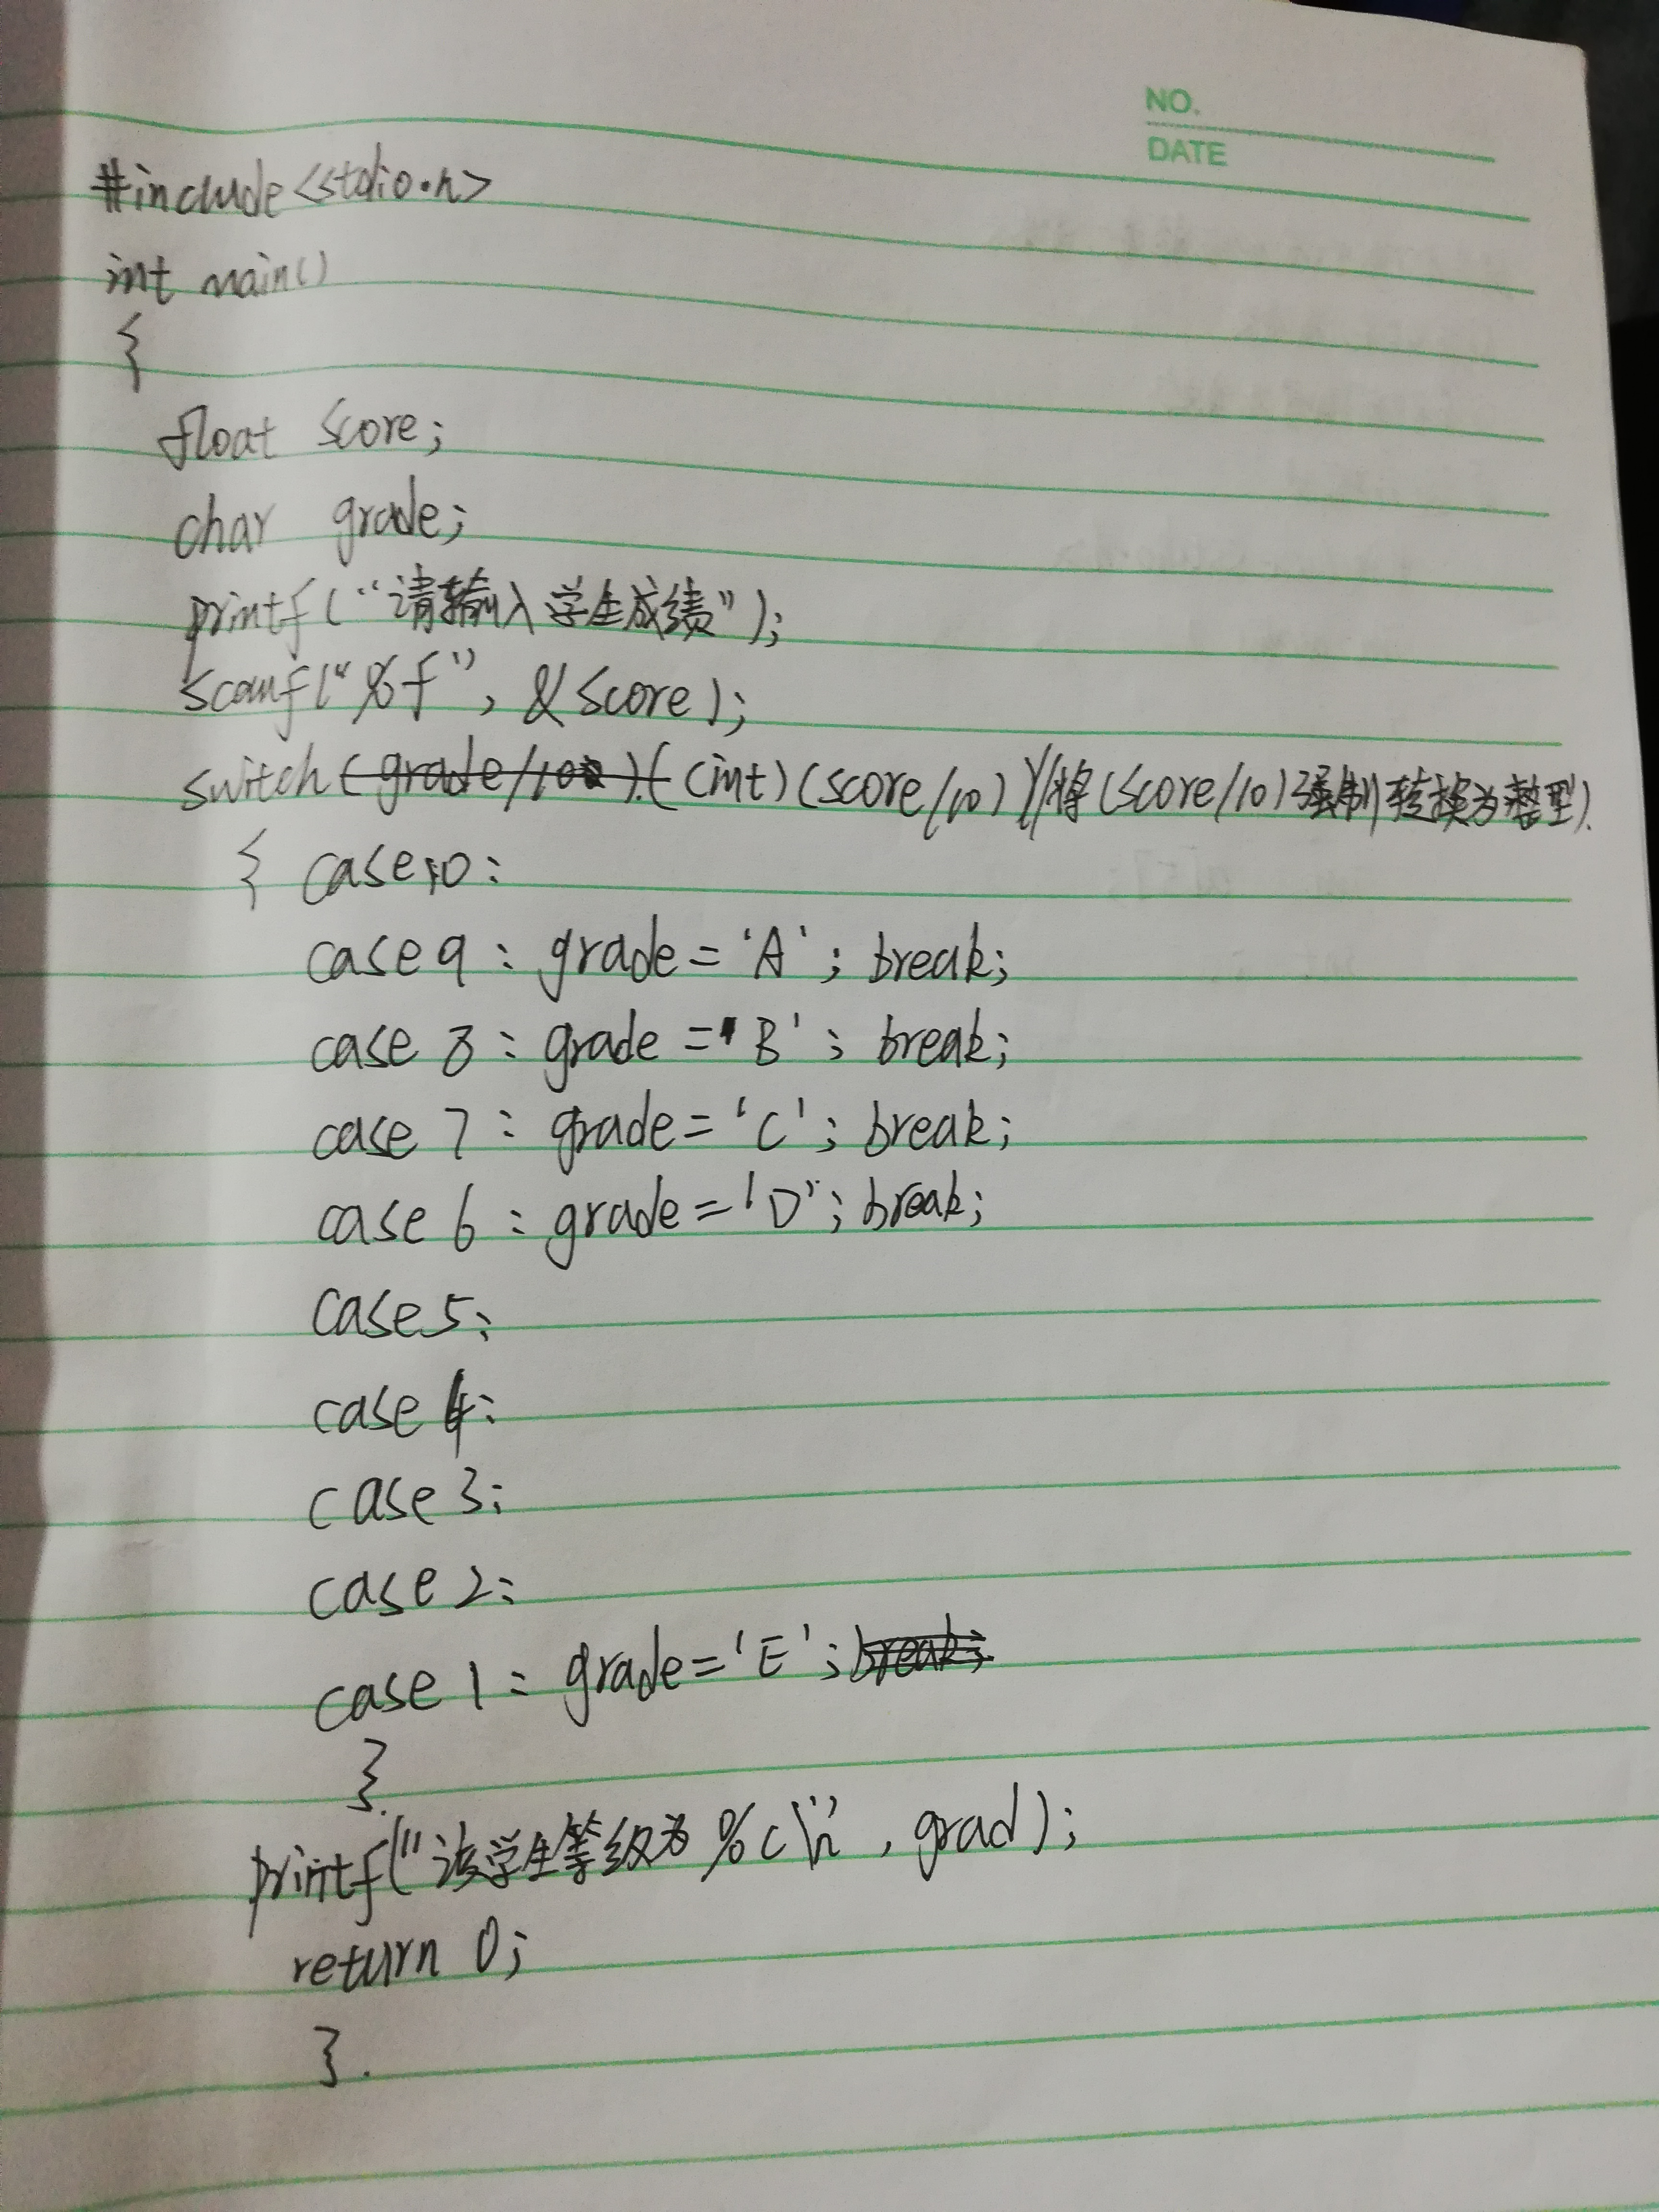 NO.
DATE
#include<stdio.h>
int main()
{
float score;
char grade;
printf("请输入学生成绩");
scanf("%f", &score);
switch((int)(score/10))//将(score/10)强制转换为整型)
{ case10:
case9: grade='A'; break;
case 8: grade='B'; break;
case 7: grade='C'; break;
case 6: grade='D'; break;
case5:
case4:
case3:
case2:
case 1: grade='E';
}
printf("该学生等级为%c\n", grad);
return 0;
}